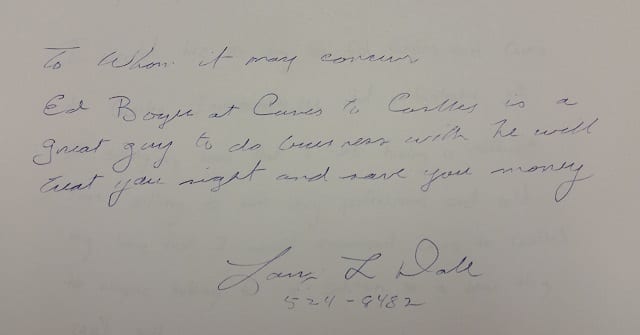 To Whom it may concur
Ed Boyle at Caves to Castles is a
great guy to do business with he will
treat you right and save you money
Larry L Dall
524-8482